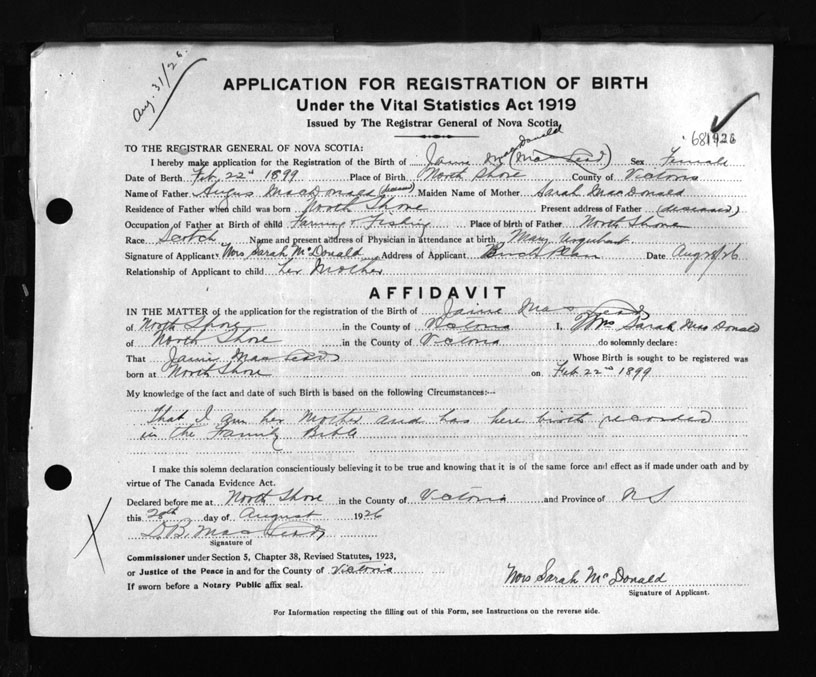 Aug. 31/26.
APPLICATION FOR REGISTRATION OF BIRTH
Under the Vital Statistics Act 1919
Issued by The Registrar General of Nova Scotia
TO THE REGISTRAR GENERAL OF NOVA SCOTIA:
MacDonald
I hereby make application for the Registration of the Birth of Sex Female
Date of Berth Feb. 22nd 1899 Place of Birth North Shore County of Victoria
Name of Father Angus MacDonald (deceased) Maiden Name of Mother Sarah MacDonald
Residence of Father when child was born North Shore Present address of Father (deceased)
Occupation of Father at Birth of child Farming & Fishing Place of birth of Father North Shore
Race Scotch Name and present address of Physician in attendance at birth Mary Urquhart
Signature of Applicant Mrs Sarah McDonald Address of Applicant Birch Plain Date
Relationship of Applicant to child her Mother
AFFIDAVIT
IN THE MATTER of the application for the registration of the Birth of
of North Shore in the County of Victoria I, Mrs Sarah MacDonald
of North Shore in the County of Victoria do solemnly declare:
That Whose Birth is sought to be registered was
born at North Shore on Feb. 22nd 1899
My knowledge of the fact and date of such Birth is based on the following Circumstances:--
That I am her Mother and has here birth recorded
in the Family Bible
I make this solemn declaration conscientiously believing it to be true and knowing that it is of the same force and effect as if made under oath and by
virtue of The Canada Evidence Act.
Declared before me at North Shore in the County of Victoria and Province of N S
this 28th day of August 1926
D. B.
Signature of
Commissioner under Section 5, Chapter 38, Revised Statutes, 1923,
or Justice of the Peace in and for the County of Victoria
If sworn before a Notary Public affix seal.
Mrs Sarah McDonald
Signature of Applicant.
For Information respecting the filling out of this Form, see Instructions on the reverse side.